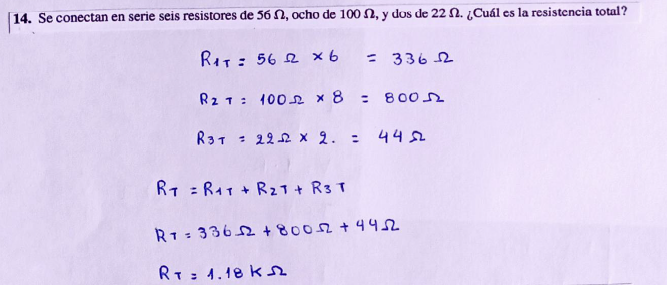 14. Se conectan en serie seis resistores de 56 Ω, ocho de 100 Ω, y dos de 22 Ω. ¿Cuál es la resistencia total?
R1T = 56 Ω × 6 = 336 Ω
R2T = 100 Ω × 8 = 800 Ω
R3T = 22 Ω × 2. = 44 Ω
RT = R1T + R2T + R3T
RT = 336 Ω + 800 Ω + 44 Ω
RT = 1.18 K Ω